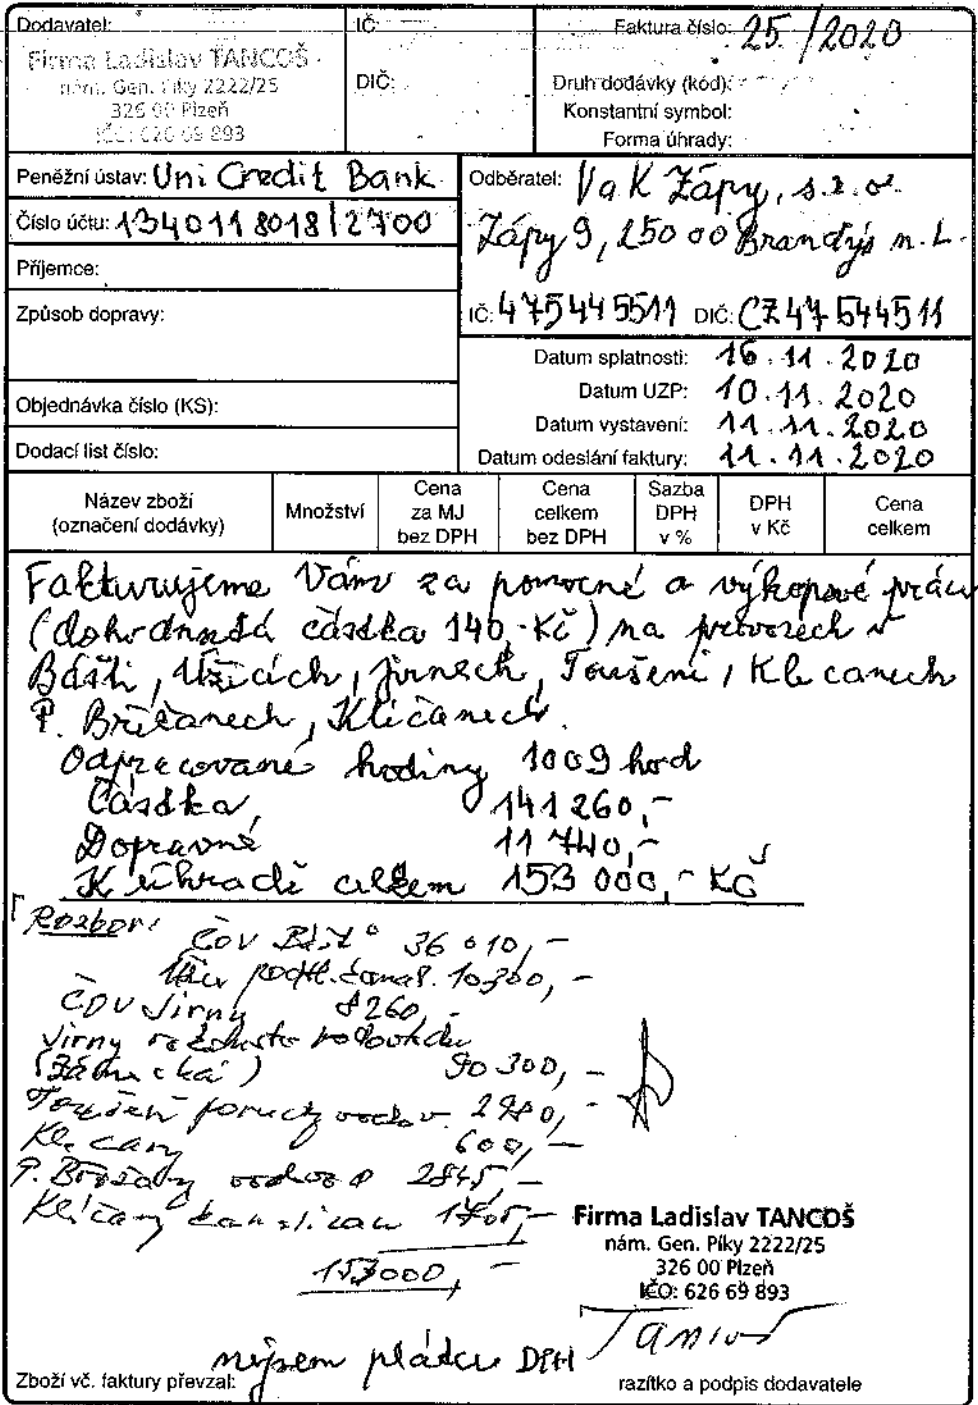 Dodavatel:
Firma Ladislav TANCOŠ
nám. Gen. Píky 2222/25
326 00 Plzeň
IČO: 626 69 893
IČ:
DIČ:
Faktura číslo: 25 /2020
Druh dodávky (kód):
Konstantní symbol:
Forma úhrady:
Peněžní ústav: Uni Credit Bank
Číslo účtu: 1340118018/2700
Příjemce:
Způsob dopravy:
Objednávka číslo (KS):
Dodací list číslo:
Odběratel: VaK Zápy, s.r.o.
Zápy 9, 250 00 Brandýs n. L.
IČ: 475445511 DIČ: CZ47544511
Datum splatnosti: 16.11.2020
Datum UZP: 10.11.2020
Datum vystavení: 11.11.2020
Datum odeslání faktury: 11.11.2020
Název zboží (označení dodávky)
Množství
Cena za MJ bez DPH
Cena celkem bez DPH
Sazba DPH v %
DPH v Kč
Cena celkem
Fakturujeme Vám za pomocné a výkopové práce
(dohodnutá částka 140,-Kč) na provozech v
Bášti, Úžicích, Jirnech, Toušeni, Klecanech
P. Břežanech, Klíčanech.
Odpracované hodiny 1009 hod
Částka 141 260,-
Dopravné 11 740,-
K úhradě celkem 153 000,- Kč
Rozbor:
ČOV Bášť 36 010,-
10300,-
ČOV Jirny 8260,-
Jirny vodovodu
(Zámecká) 90 300,-
Toušeň poruchy vodov. 2980,-
Klecany 600,-
P. Břežany vodovod 2845,-
Klíčany kanalizace 1705,-
153000,-
Firma Ladislav TANCOŠ
nám. Gen. Píky 2222/25
326 00 Plzeň
IČO: 626 69 893
Tancoš
nejsem plátce DPH
Zboží vč. faktury převzal:
razítko a podpis dodavatele